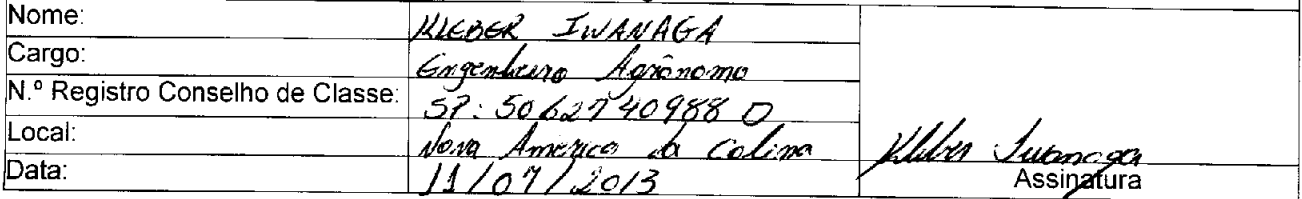 Nome: KLEBER IWANAGA
Cargo: Engenheiro Agrônomo
N.º Registro Conselho de Classe: SP: 5062740988 D
Local: Nova America da Colina
Data: 11/07/2013
Kleber Iwanaga
Assinatura